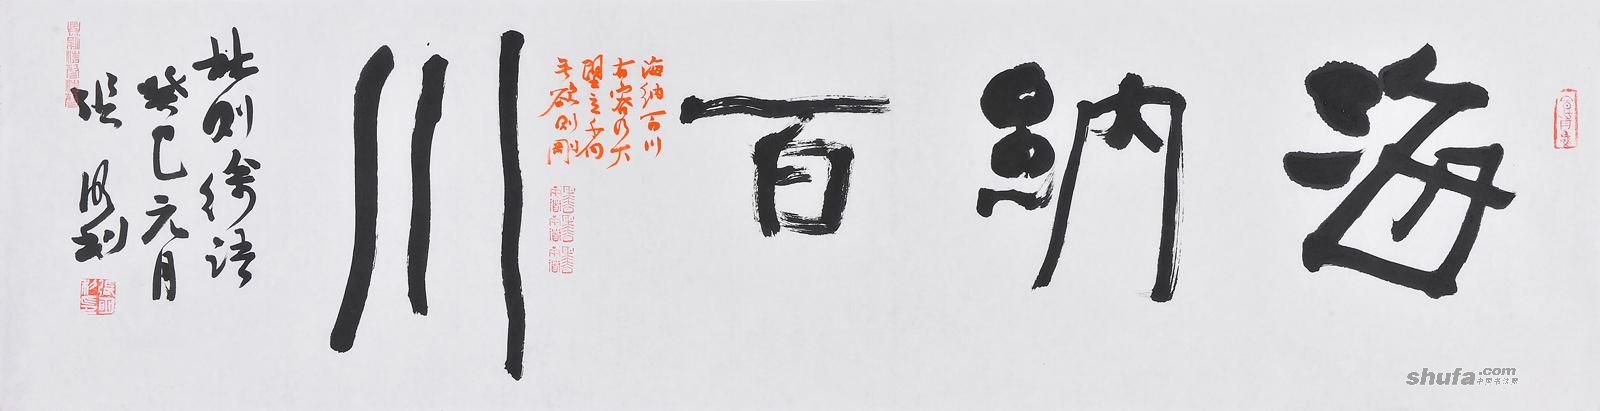 海納百川
海納百川
有容乃大
壁立千仞
無欲則剛
林則徐語
癸巳元月
張
shufa.com
中国书法网